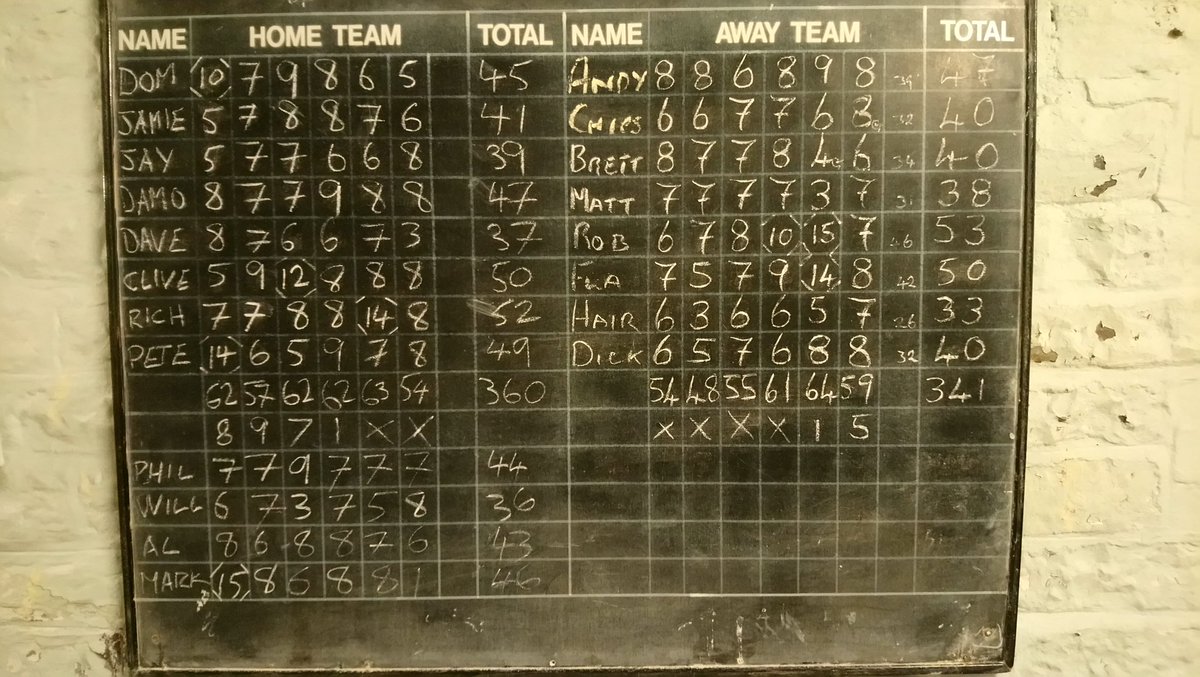 NAME HOME TEAM TOTAL NAME AWAY TEAM TOTAL
DOM 10 7 9 8 6 5 45 ANDY 8 8 6 8 9 8 39 47
JAMIE 5 7 8 8 7 6 41 CHIPS 6 6 7 7 6 8 32 40
JAY 5 7 7 6 6 8 39 BRETT 8 7 7 8 4 6 34 40
DAMO 8 7 7 9 8 8 47 MATT 7 7 7 7 3 7 31 38
DAVE 8 7 6 6 7 3 37 ROB 6 7 8 10 15 7 46 53
CLIVE 5 9 12 8 8 8 50 7 5 7 9 14 8 42 50
RICH 7 7 8 8 14 8 52 HAIR 6 3 6 6 5 7 26 33
PETE 14 6 5 9 7 8 49 DICK 6 5 7 6 8 8 32 40
62 57 62 62 63 54 360 54 48 55 61 64 59 341
8 9 7 1 X X X X X X 1 5
PHIL 7 7 9 7 7 7 44
WILL 6 7 3 7 5 8 36
AL 8 6 8 8 7 6 43
MARK 15 8 6 8 8 1 46